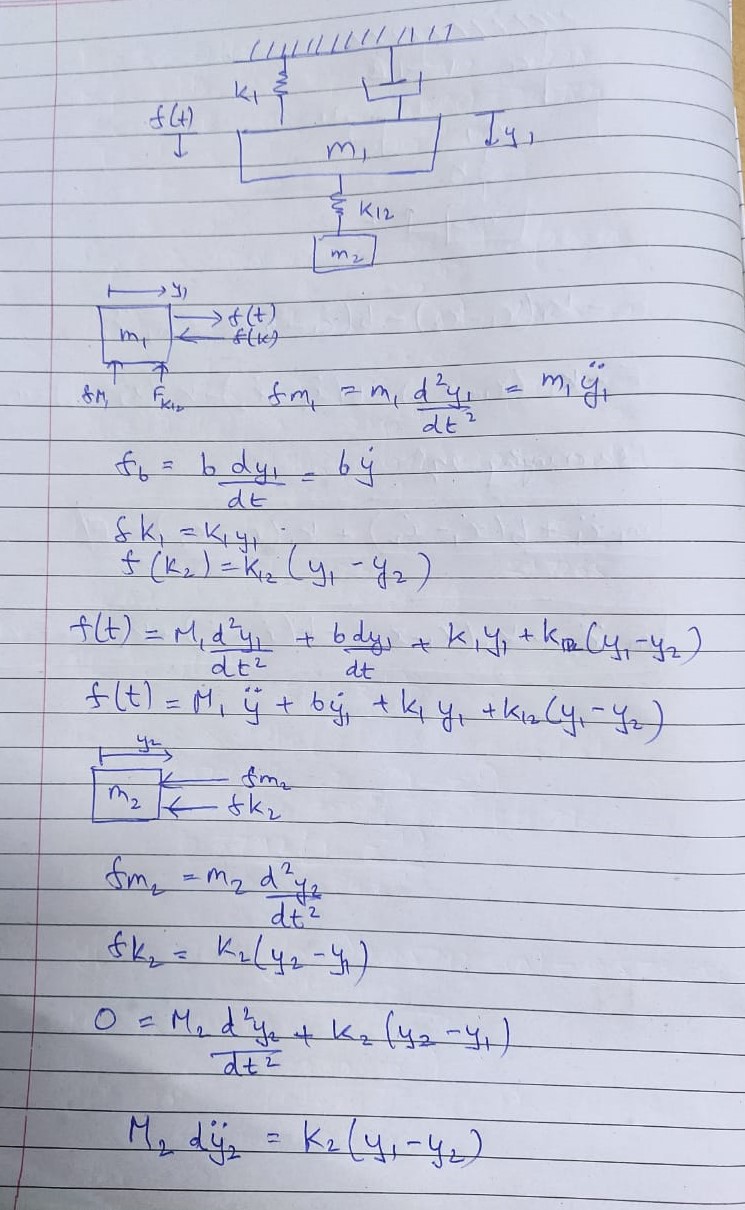 K₁
f(t)
y₁
m₁
K₁₂
m₂
y₁
f(t)
m₁
f(k)
fM₁ F_K₁₂
fm₁ = m₁ d²y₁/dt² = m₁ÿ₁
f_b = b dy₁/dt = bẏ
fk₁ = K₁y₁
f(k₂) = k₁₂(y₁ - y₂)
f(t) = M₁ d²y₁/dt² + b dy₁/dt + K₁y₁ + k₁₂(y₁ - y₂)
f(t) = M₁ÿ + bẏ₁ + k₁y₁ + k₁₂(y₁ - y₂)
y₂
m₂
fm₂
fk₂
fm₂ = m₂ d²y₂/dt²
fk₂ = K₂(y₂ - y₁)
0 = M₂ d²y₂/dt² + K₂(y₂ - y₁)
M₂ dÿ₂ = K₂(y₁ - y₂)